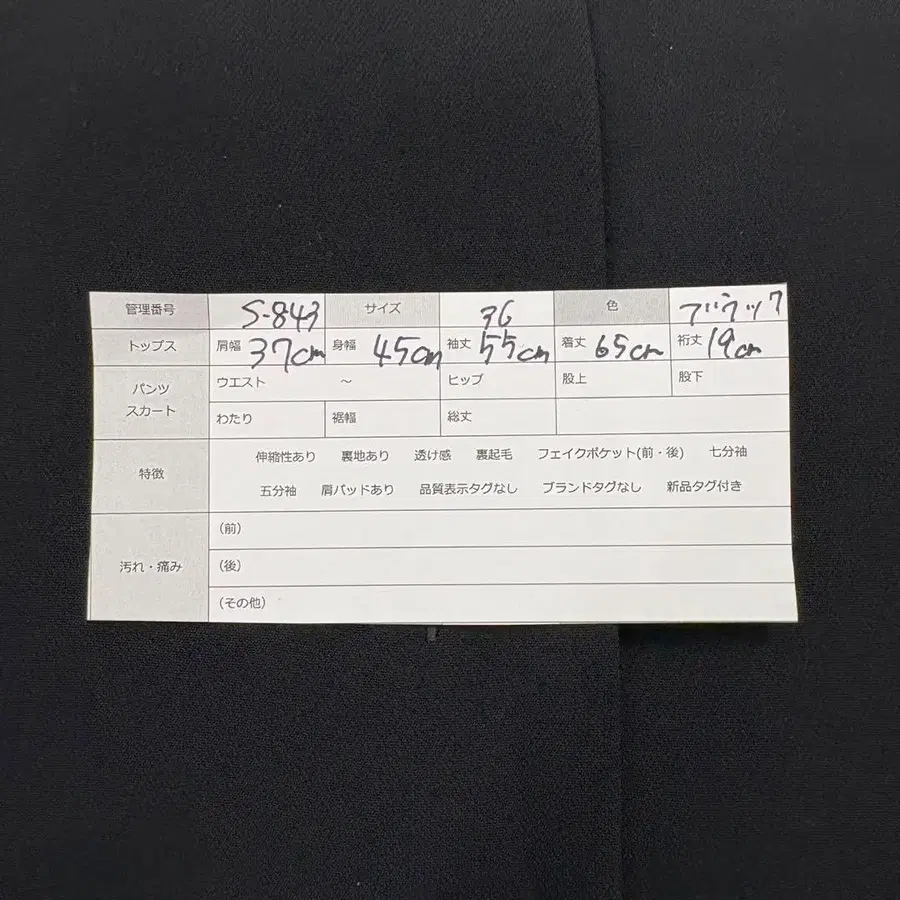 管理番号 S-843 サイズ 36 色 ブラック
トップス 肩幅 37cm 身幅 45cm 袖丈 55cm 着丈 65cm 裄丈 19cm
パンツ スカート ウエスト ～ ヒップ 股上 股下
わたり 裾幅 総丈
特徴 伸縮性あり 裏地あり 透け感 裏起毛 フェイクポケット(前・後) 七分袖
五分袖 肩パッドあり 品質表示タグなし ブランドタグなし 新品タグ付き
汚れ・痛み (前)
(後)
(その他)